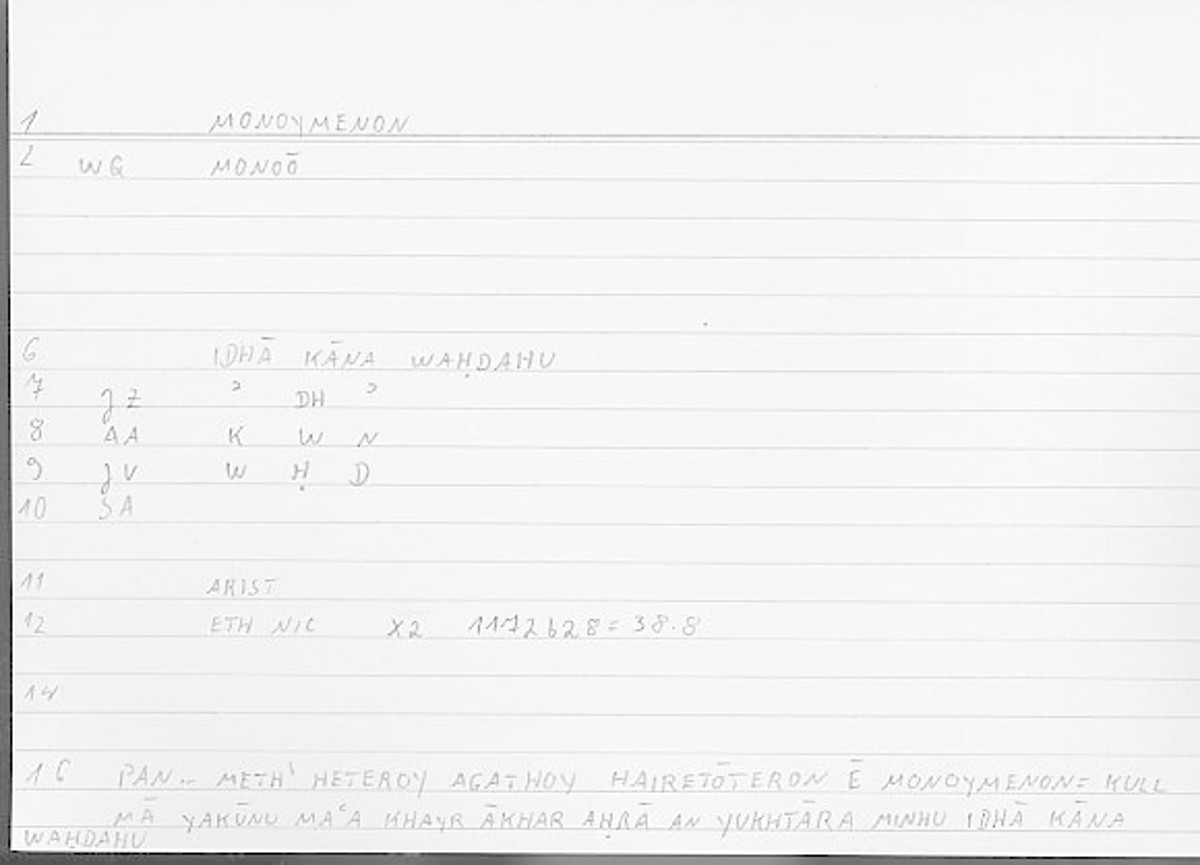 1 MONOYMENON
2 WG MONOŌ
6 IDHĀ KĀNA WAḤDAHU
7 JZ ʾ DH ʾ
8 AA K W N
9 JV W Ḥ D
10 SA
11 ARIST
12 ETH NIC X2 1172b28 = 38.8
14
16 PAN.. METH' HETEROY AGATHOY HAIRETŌTERON Ē MONOYMENON = KULL
MĀ YAKŪNU MAʿA KHAYR ĀKHAR AḤRĀ AN YUKHTĀRA MINHU IDHĀ KĀNA
WAḤDAHU